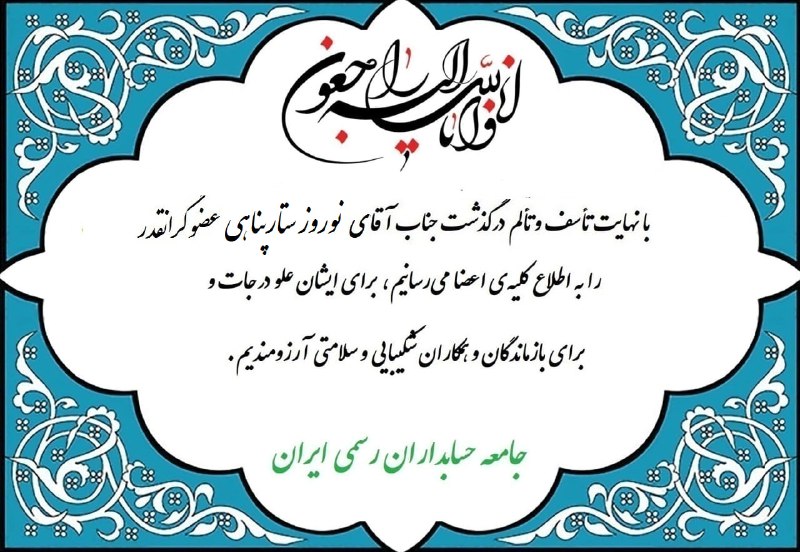 انا لله و انا الیه راجعون
با نهایت تأسف و تألم درگذشت جناب آقای نوروز ستارپناهی عضو گرانقدر
را به اطلاع کلیه‌ی اعضا می‌رسانیم، برای ایشان علو درجات و
برای بازماندگان و همکاران شکیبایی و سلامتی آرزومندیم.
جامعه حسابداران رسمی ایران